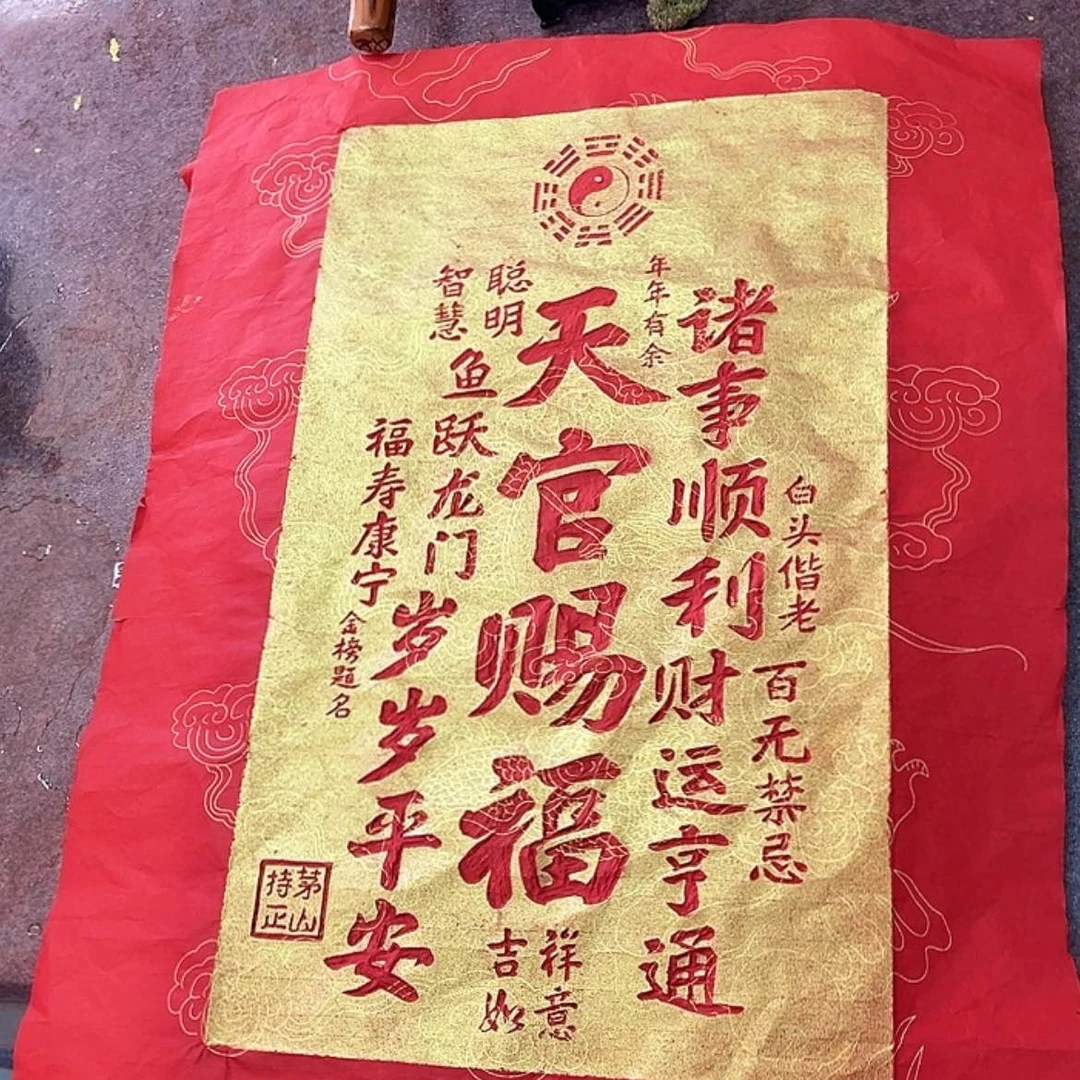 白头偕老
百无禁忌
诸事顺利财运亨通
年年有余
天官赐福
祥意
吉如
聪明
智慧
鱼跃龙门
岁岁平安
福寿康宁
金榜题名
茅山
持正